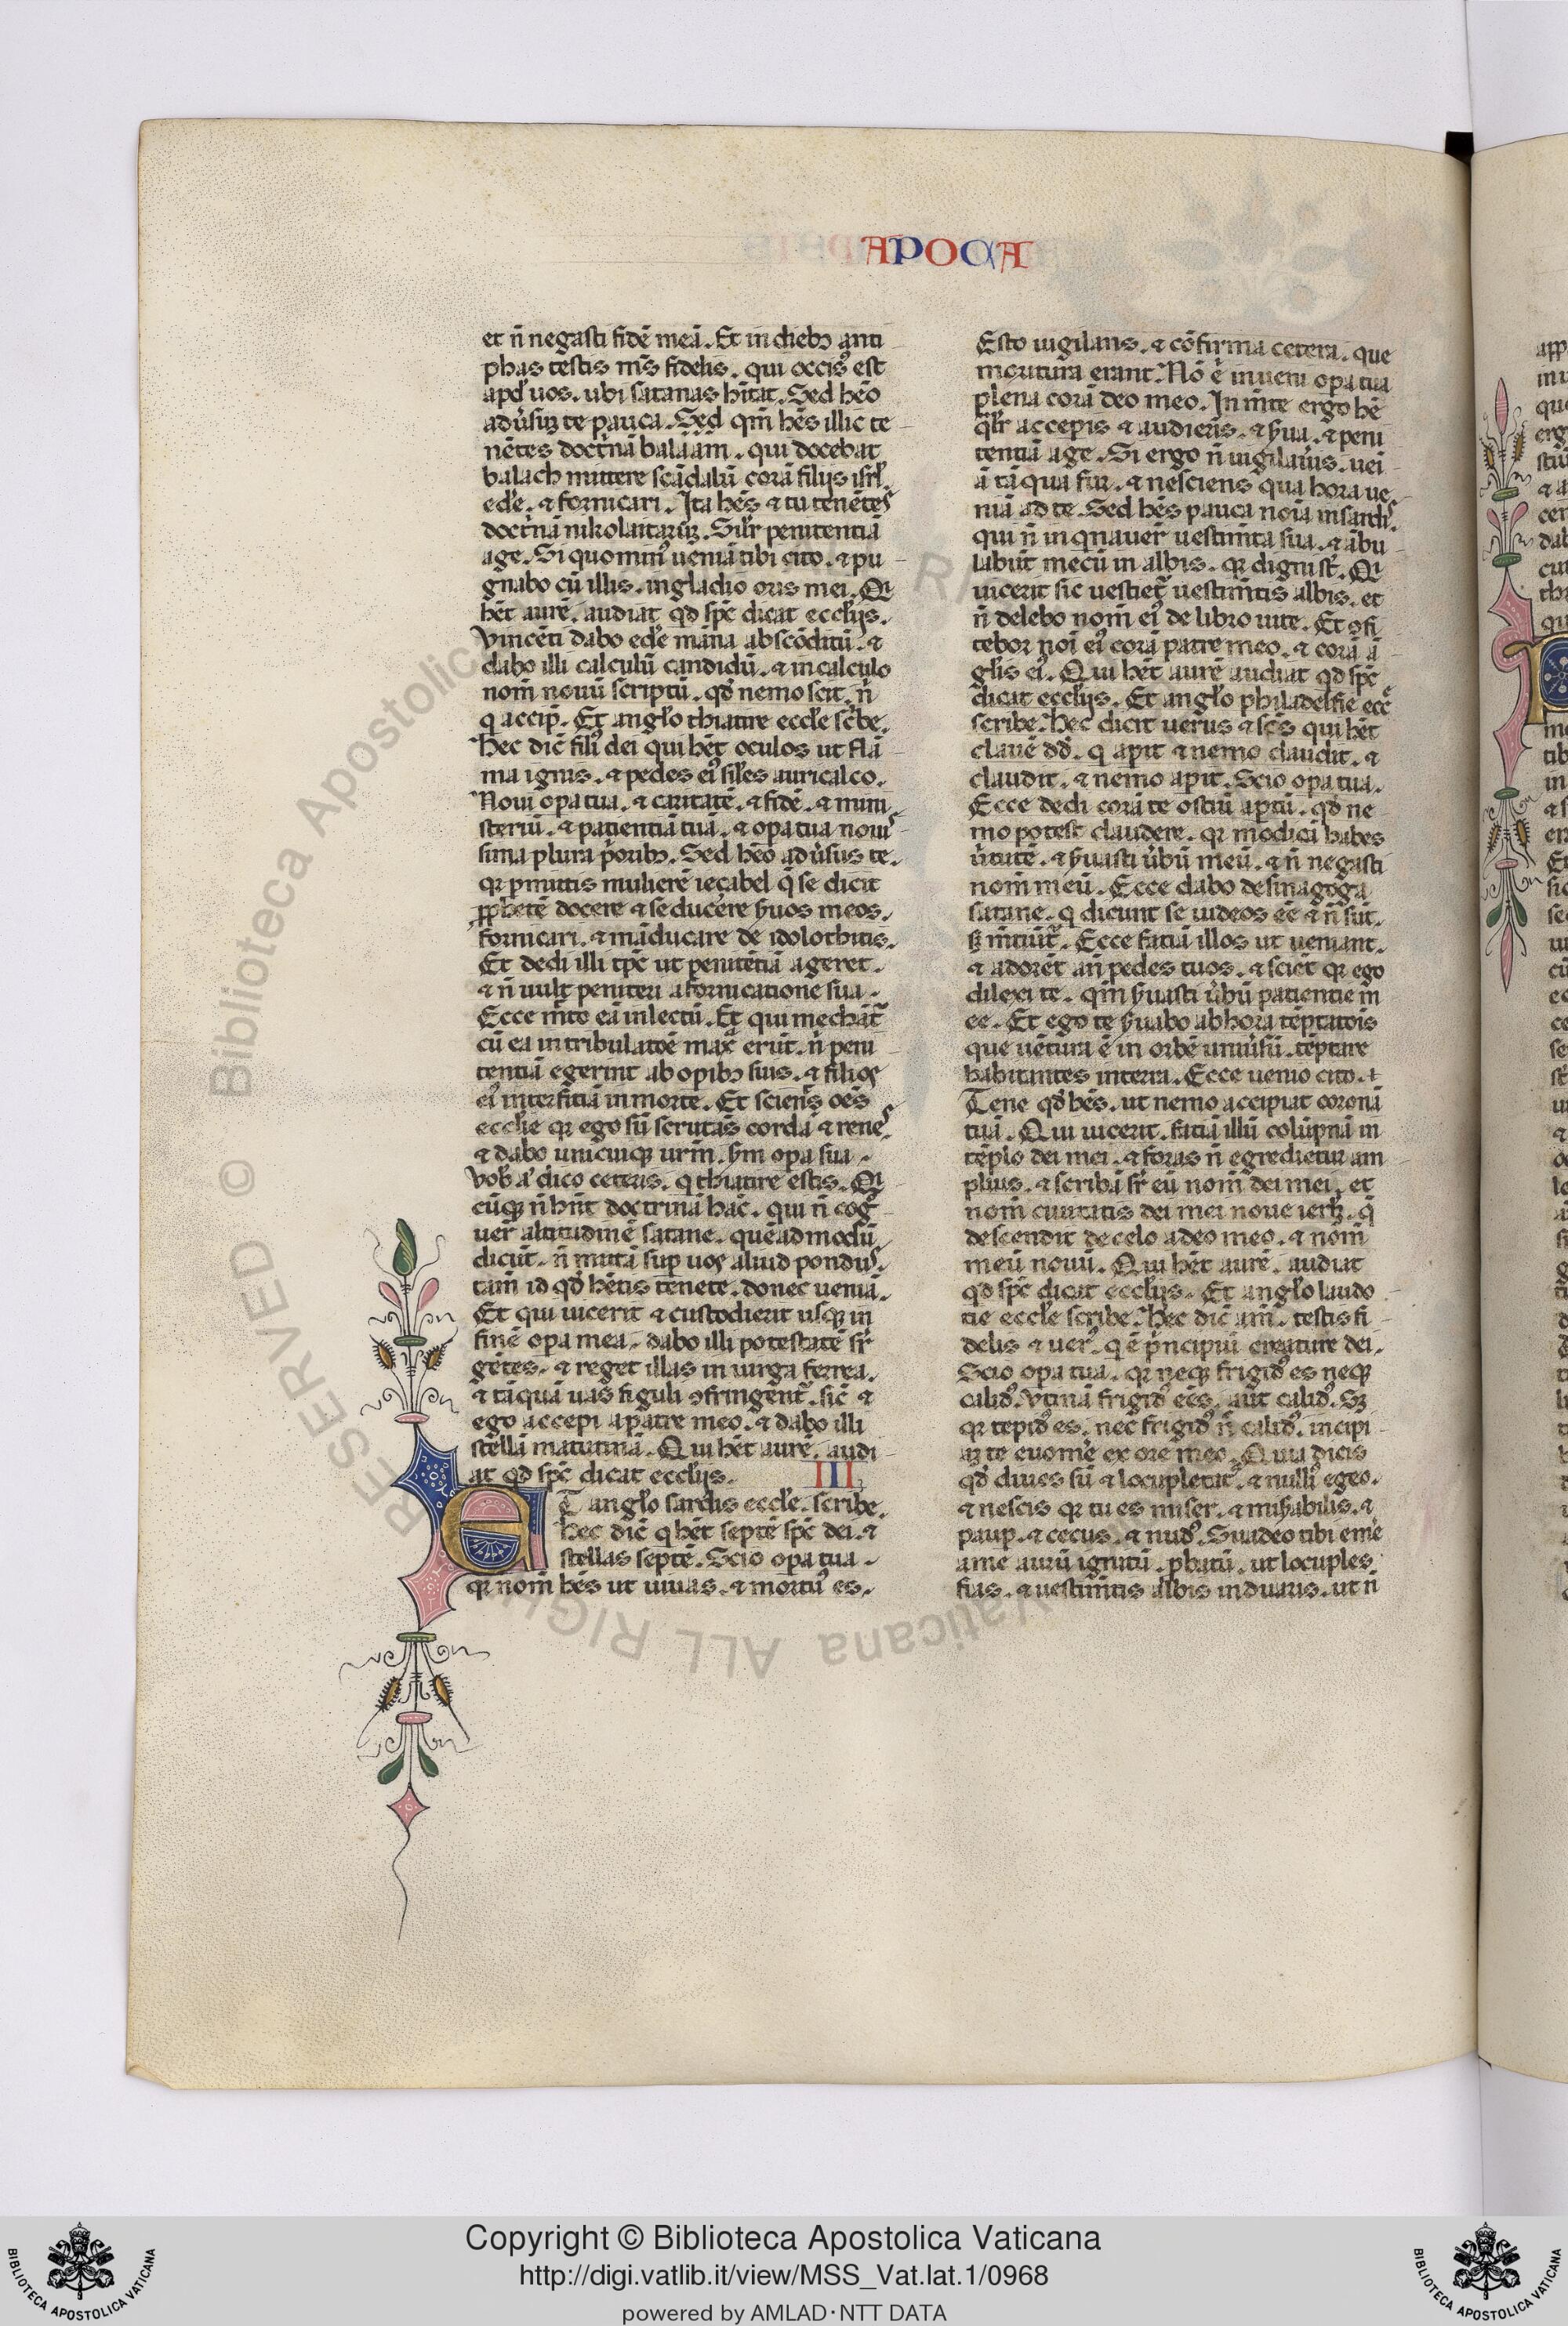 APOCA
et n̄ negasti fidē meā. Et in dieb⁊ anti
phas testis m̄s fidelis. qui occis⁹ est
apd̓ uos. ubi satanas hītat. Sed hēo
adūsuꝫ te pauca. Sed qm̄ hēs illic te
nētes doctrinā balaam. qui docebat
balach mittere scādalū corā filijs isrl̓.
ede̓. ⁊ fornicari. Ita hēs ⁊ tu tenētes
doctrinā nikolaitaruꝫ. Silr̓ penitentiā
age. Si quo min⁹ ueniā tibi cito. ⁊ pu
gnabo cū illis. in gladio oris mei. Qi
hēt aurē. audiat qd̓ sp̄c dicat eccl̓ijs.
Vincēti dabo ede̓ māna abscōditū. ⁊
dabo illi calculū candidū. ⁊ in calculo
nom̄ nouū scriptū. qd̓ nemo scit. n̄
q accip̄. Et angl̓o thiatire eccl̓e sc̓be.
Hec dic̄ fili⁹ dei qui hēt oculos ut flā
ma ignis. ⁊ pedes ei⁹ sil̓es auricalco.
Noui opa tua. ⁊ caritatē. ⁊ fidē. ⁊ mini
steriū. ⁊ patientiā tuā. ⁊ opa tua noui
sima plura p̓orib⁊. Sed hēo adūsus te.
qr pmittis mulierē ieçabel q̄ se dicit
ꝓphetē docere ⁊ seducere s̓uos meos.
fornicari. ⁊ māducare de idolothitis.
Et dedi illi tp̄c ut penitētiā ageret.
⁊ n̄ uult peniteri a fornicatione sua.
Ecce m̄to eā in lectū. Et qui mechāt̓
cū ea in tribulatōe max̄ erūt. n̄ peni
tentiā egerint ab opib⁊ suis. ⁊ filios
ei⁹ interfitiā in morte. Et scient̓ oēs
eccl̓ie qr ego sū scrutās corda ⁊ renes.
⁊ dabo unicuiqꝫ urm̄. s̓m opa sua.
Vob̓ a̓ dico ceteris. q thiatire estis. Qi
cūqꝫ n̄ hn̄t doctrinā hāc. qui n̄ cog̓
uer̄ altitudinē satane. quēadmodū
dicūt. n̄ mittā sup uos aliud pondus.
tam̄ id qd̓ hētis tenete. donec ueniā.
Et qui uicerit ⁊ custodierit usqꝫ in
finē opa mea. dabo illi potestatē sr̓
gētes. ⁊ reget illas in uirga ferrea.
⁊ tāquā uas figuli ꝯfringent̓. sic̄ ⁊
ego accepi a patre meo. ⁊ dabo illi
stellā matutinā. Qui hēt aurē. audi
at qd̓ sp̄c dicat eccl̓ijs. III
ET angl̓o sardis eccl̓e. scribe.
Hec dic̄ q hēt septē sp̄c dei. ⁊
stellas septē. Scio opa tua.
qr nom̄ hēs ut uiuas. ⁊ mortu⁹ es.
Esto uigilans. ⁊ cōfirma cetera. que
moritura erant. Nō ē inueni opa tua
plena corā deo meo. In m̄te ergo hē
ql̓r accepis ⁊ audieris. ⁊ s̓ua. ⁊ peni
tentiā age. Si ergo n̄ uigilaūis. uei
ā tā qua fur. ⁊ nesciens qua hora ue
niā ad te. Sed hēs pauca noīa in sardis.
qui n̄ inqnauer̄ uestim̄ta sua. ⁊ ābu
labūt mecū in albis. qr digni sr̄. Qi
uicerit sic uestiet̓ uestim̄tis albis. et
n̄ delebo nom̄ ei⁹ de libro uite. Et ꝯfi
tebor noī ei⁹ corā patre meo. ⁊ corā ā
gl̓is ei⁹. Qui hēt aurē audiat qd̓ sp̄c
dicat eccl̓ijs. Et angl̓o philadelfie ecc̄
scribe. Hec dicit uerus ⁊ sc̄s qui hēt
clauē dd̓. q apit ⁊ nemo claudit. ⁊
claudit. ⁊ nemo apit. Scio opa tua.
Ecce dedi corā te ostiū aptū. qd̓ ne
mo potest claudere. qr modicā habes
ūtutē. ⁊ s̓uasti ūbū meū. ⁊ n̄ negasti
nom̄ meū. Ecce dabo de sinagoga
satane. q dicunt se iudeos eē ⁊ n̄ sūt.
sꝫ m̄tiūt̓. Ecce fatiā illos ut ueniant.
⁊ adorēt an̄ pedes tuos. ⁊ sciēt qr ego
dilexi te. qm̄ s̓uasti ūbū patientie m̄
ee. Et ego te s̓uabo ab hora tēptatōis
que uētura ē in orbē uniūsū. tēptare
habitantes in terra. Ecce uenio cito.
Tene qd̓ hēs. ut nemo accipiat coronā
tuā. Qui uicerit. fatiā illū colūpnā in
tēplo dei mei. ⁊ foras n̄ egredietur am
plius. ⁊ scribā sr̓ eū nom̄ dei mei. et
nom̄ ciuitatis dei mei noue ierl̓ꝫ. q̄
descendit de celo a deo meo. ⁊ nom̄
meū nouū. Qui hēt aurē. audiat
qd̓ sp̄c dicat eccl̓ijs. Et angl̓o laudo
tie eccl̓e scribe. Hec dic̄ am̄. testis fi
delis ⁊ uer⁹. q ē p̓ncipiū creature dei.
Scio opa tua. qr neqꝫ frigid⁹ es neqꝫ
calid⁹. Vtinā frigid⁹ eēs. aūt calid⁹. Sꝫ
qr tepid⁹ es. nec frigid⁹ n̄ calid⁹. incipi
aꝫ te euome̓ ex ore meo. Quia dicis
qd̓ diues sū ⁊ locupletat̓. ⁊ nulli⁹ egeo.
⁊ nescis qr tu es miser. ⁊ mis̓abilis. ⁊
paup. ⁊ cecus. ⁊ nud⁹. Suadeo tibi eme̓
a me aurū ignitū. pbatū. ut locuples
fias. ⁊ uestim̄tis albis induaris. ut n̄
© Biblioteca Apostolica Vaticana ALL RIGHTS RESERVED
Copyright © Biblioteca Apostolica Vaticana
http://digi.vatlib.it/view/MSS_Vat.lat.1/0968
powered by AMLAD·NTT DATA
BIBLIOTECA APOSTOLICA VATICANA
BIBLIOTECA APOSTOLICA VATICANA